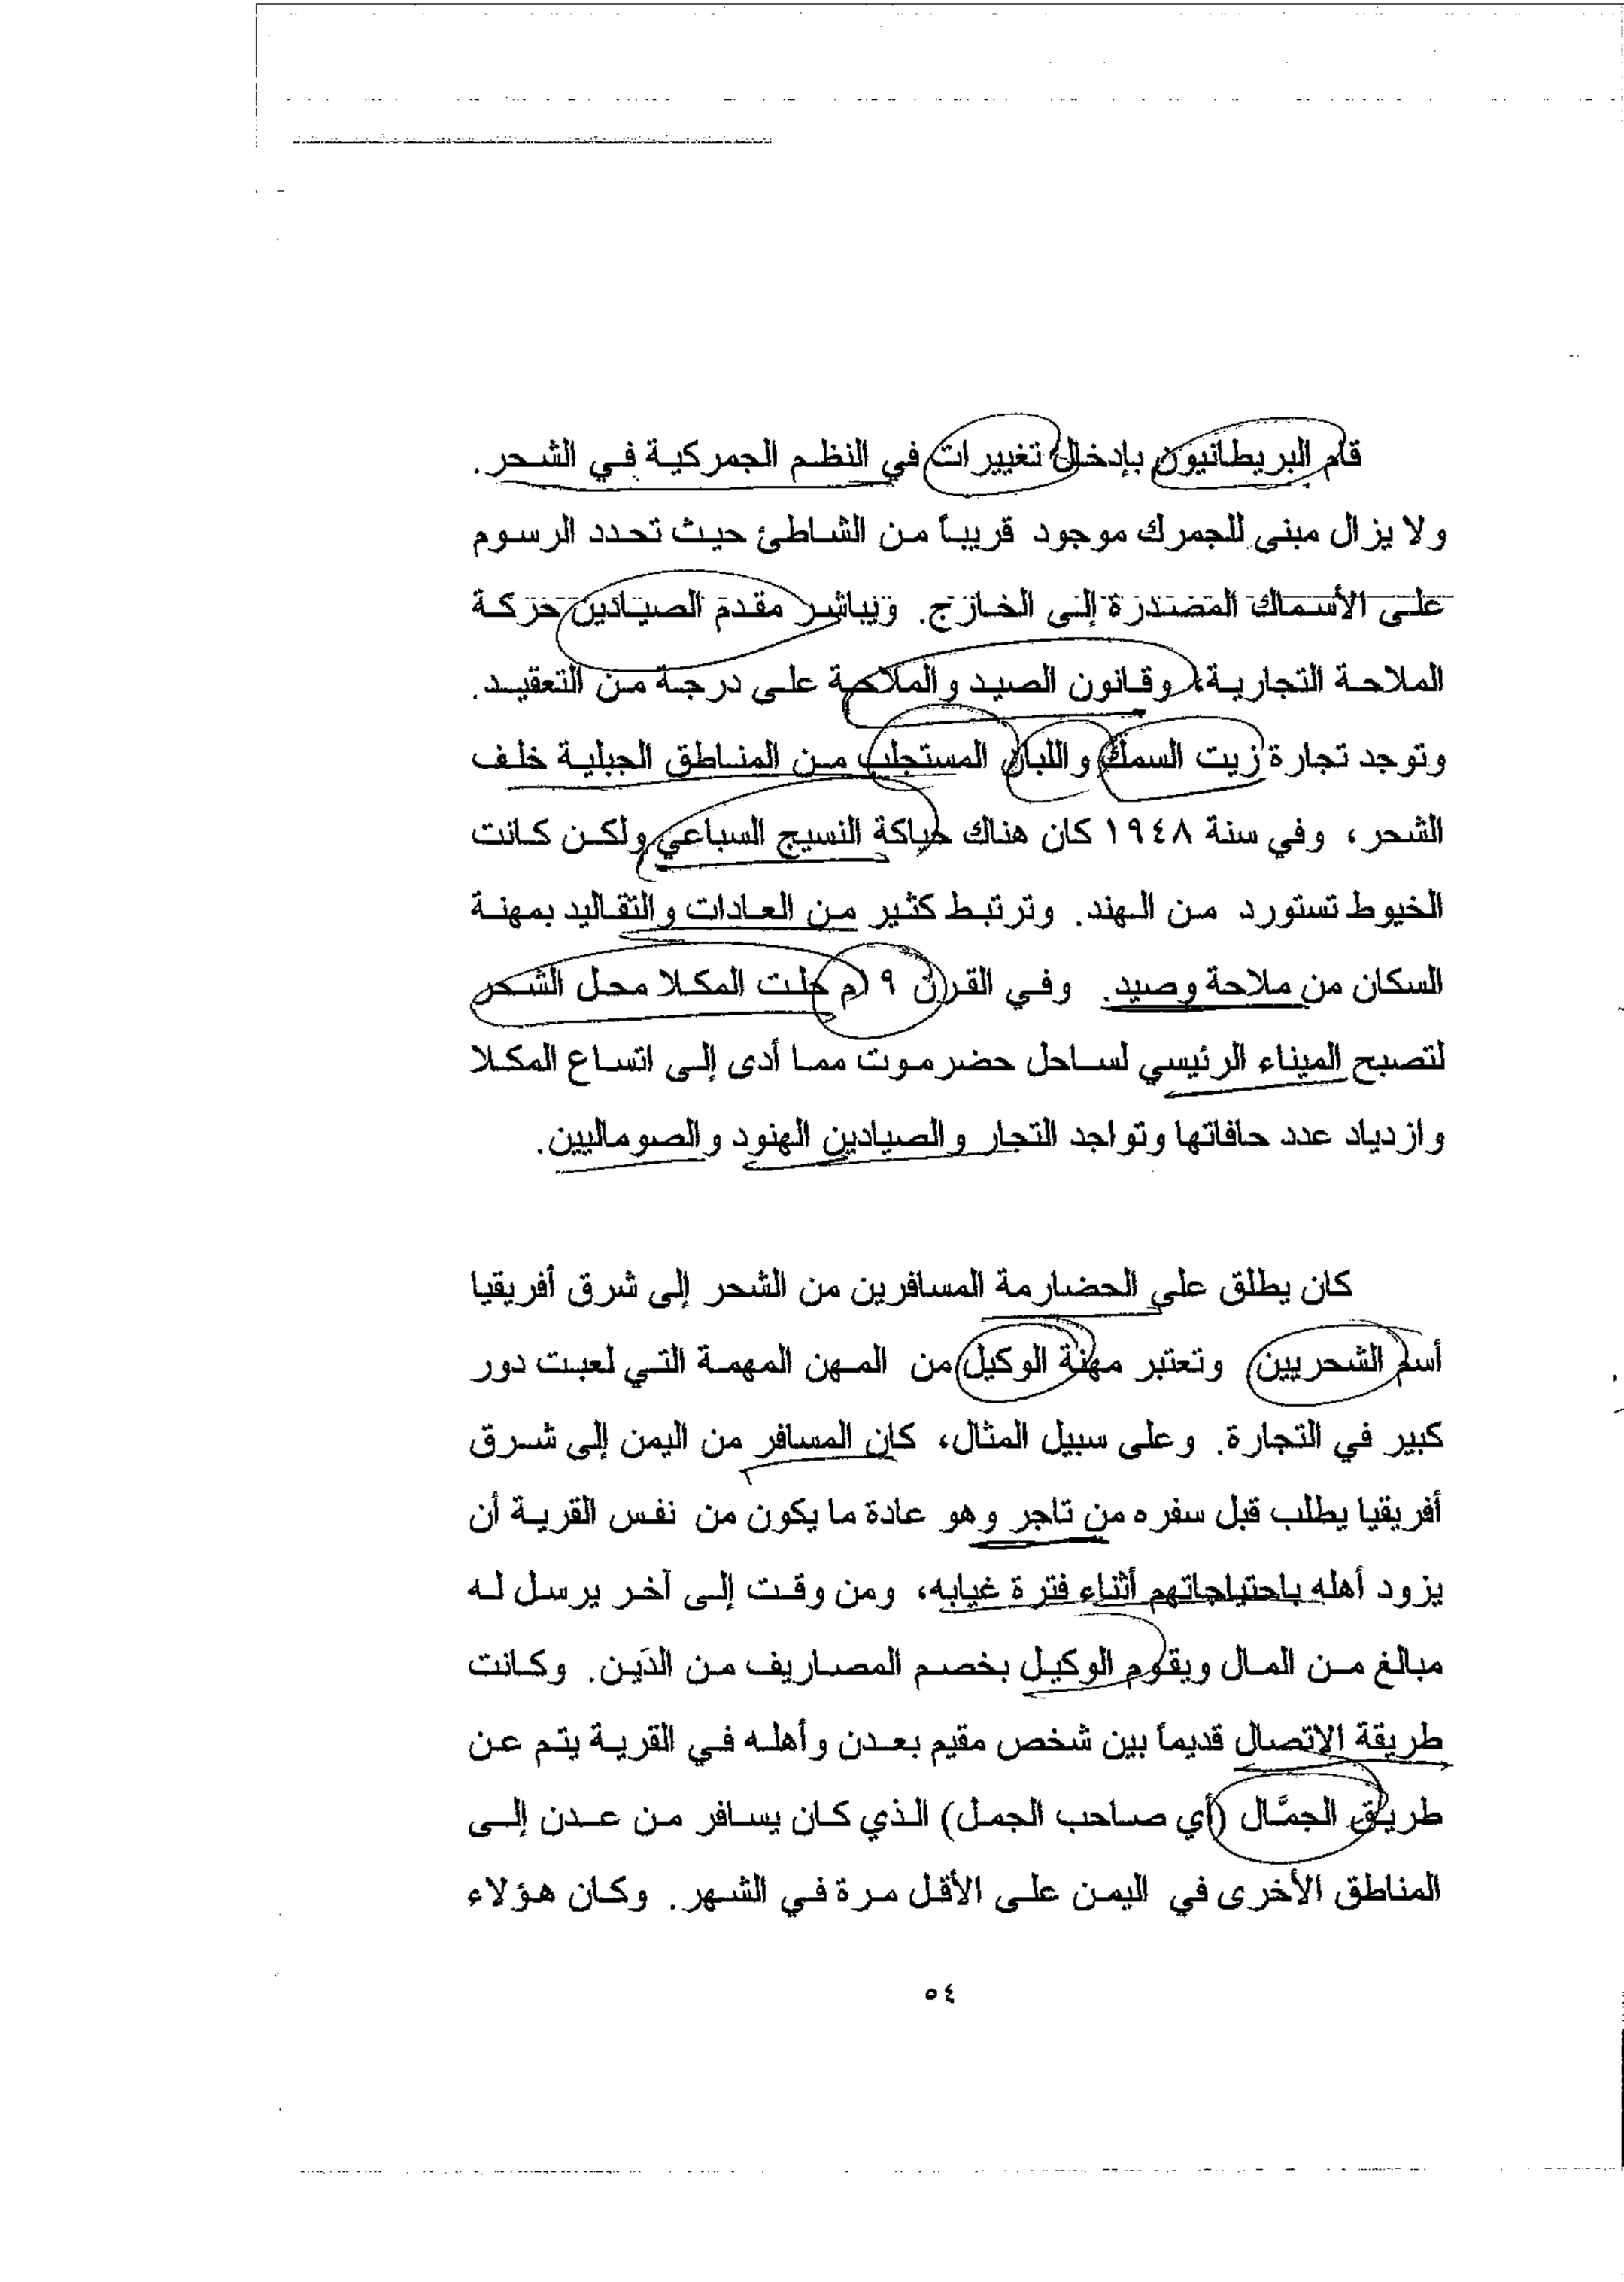 قام البريطانيون بإدخال تغييرات في النظم الجمركية في الشحر.
ولا يزال مبنى للجمرك موجود قريباً من الشاطئ حيث تحدد الرسوم
على الأسماك المصدرة إلى الخارج. ويباشر مقدم الصيادين حركة
الملاحة التجارية، وقانون الصيد والملاحة على درجة من التعقيد.
وتوجد تجارة زيت السمك واللبان المستجلب من المناطق الجبلية خلف
الشحر، وفي سنة ١٩٤٨ كان هناك حياكة النسيج السباعي ولكن كانت
الخيوط تستورد من الهند. وترتبط كثير من العادات والتقاليد بمهنة
السكان من ملاحة وصيد. وفي القرن ١٩م حلت المكلا محل الشحر
لتصبح الميناء الرئيسي لساحل حضرموت مما أدى إلى اتساع المكلا
وازدياد عدد حافاتها وتواجد التجار والصيادين الهنود والصوماليين.
كان يطلق على الحضارمة المسافرين من الشحر إلى شرق أفريقيا
أسم الشحريين وتعتبر مهنة الوكيل من المهن المهمة التي لعبت دور
كبير في التجارة. وعلى سبيل المثال، كان المسافر من اليمن إلى شرق
أفريقيا يطلب قبل سفره من تاجر وهو عادة ما يكون من نفس القرية أن
يزود أهله باحتياجاتهم أثناء فترة غيابه، ومن وقت إلى آخر يرسل له
مبالغ من المال ويقوم الوكيل بخصم المصاريف من الدَين. وكانت
طريقة الاتصال قديماً بين شخص مقيم بعدن وأهله في القرية يتم عن
طريق الجمَّال (أي صاحب الجمل) الذي كان يسافر من عدن إلى
المناطق الأخرى في اليمن على الأقل مرة في الشهر. وكان هؤلاء
٥٤